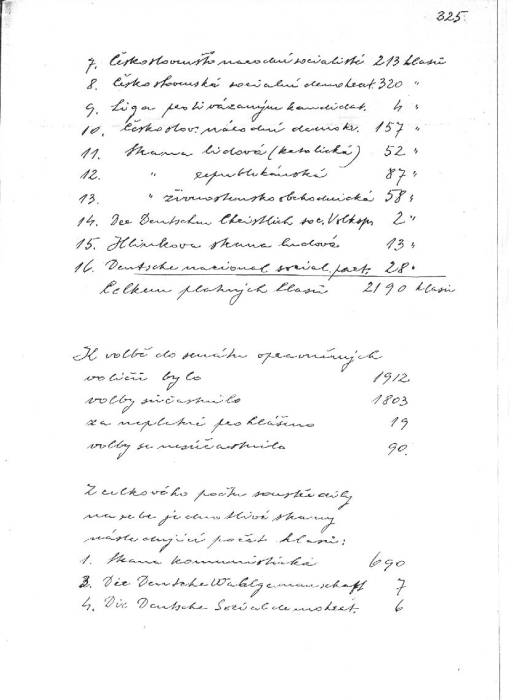 325.
7. Českoslovenští národní socialisté 213 hlasů
8. Československá sociální demokrat. 320 "
9. Liga proti vázaným kandidát. 4 "
10. Českoslov. národní demokr. 157 "
11. Strana lidová (katolická) 52 "
12. " republikánská 87 "
13. " živnostensko obchodnická 58 "
14. Die Deutschen Christlich soc. Volksp. 2 "
15. Hlinkova strana ludová 13 "
16. Deutsche nacional. social. part. 28 "
Celkem platných hlasů 2190 hlasů
K volbě do senátu oprávněných
voličů bylo 1912
volby súčastnilo 1803
za neplatné prohlášeno 19
volby se nesúčastnilo 90.
Z celkového počtu soustředily
na sebe jednotlivé strany
následující počet hlasů:
1. Strana komunistická 690
3. Die Deutsche Wahlgemeinschaft 7
4. Die Deutsche Socialdemokrat. 6